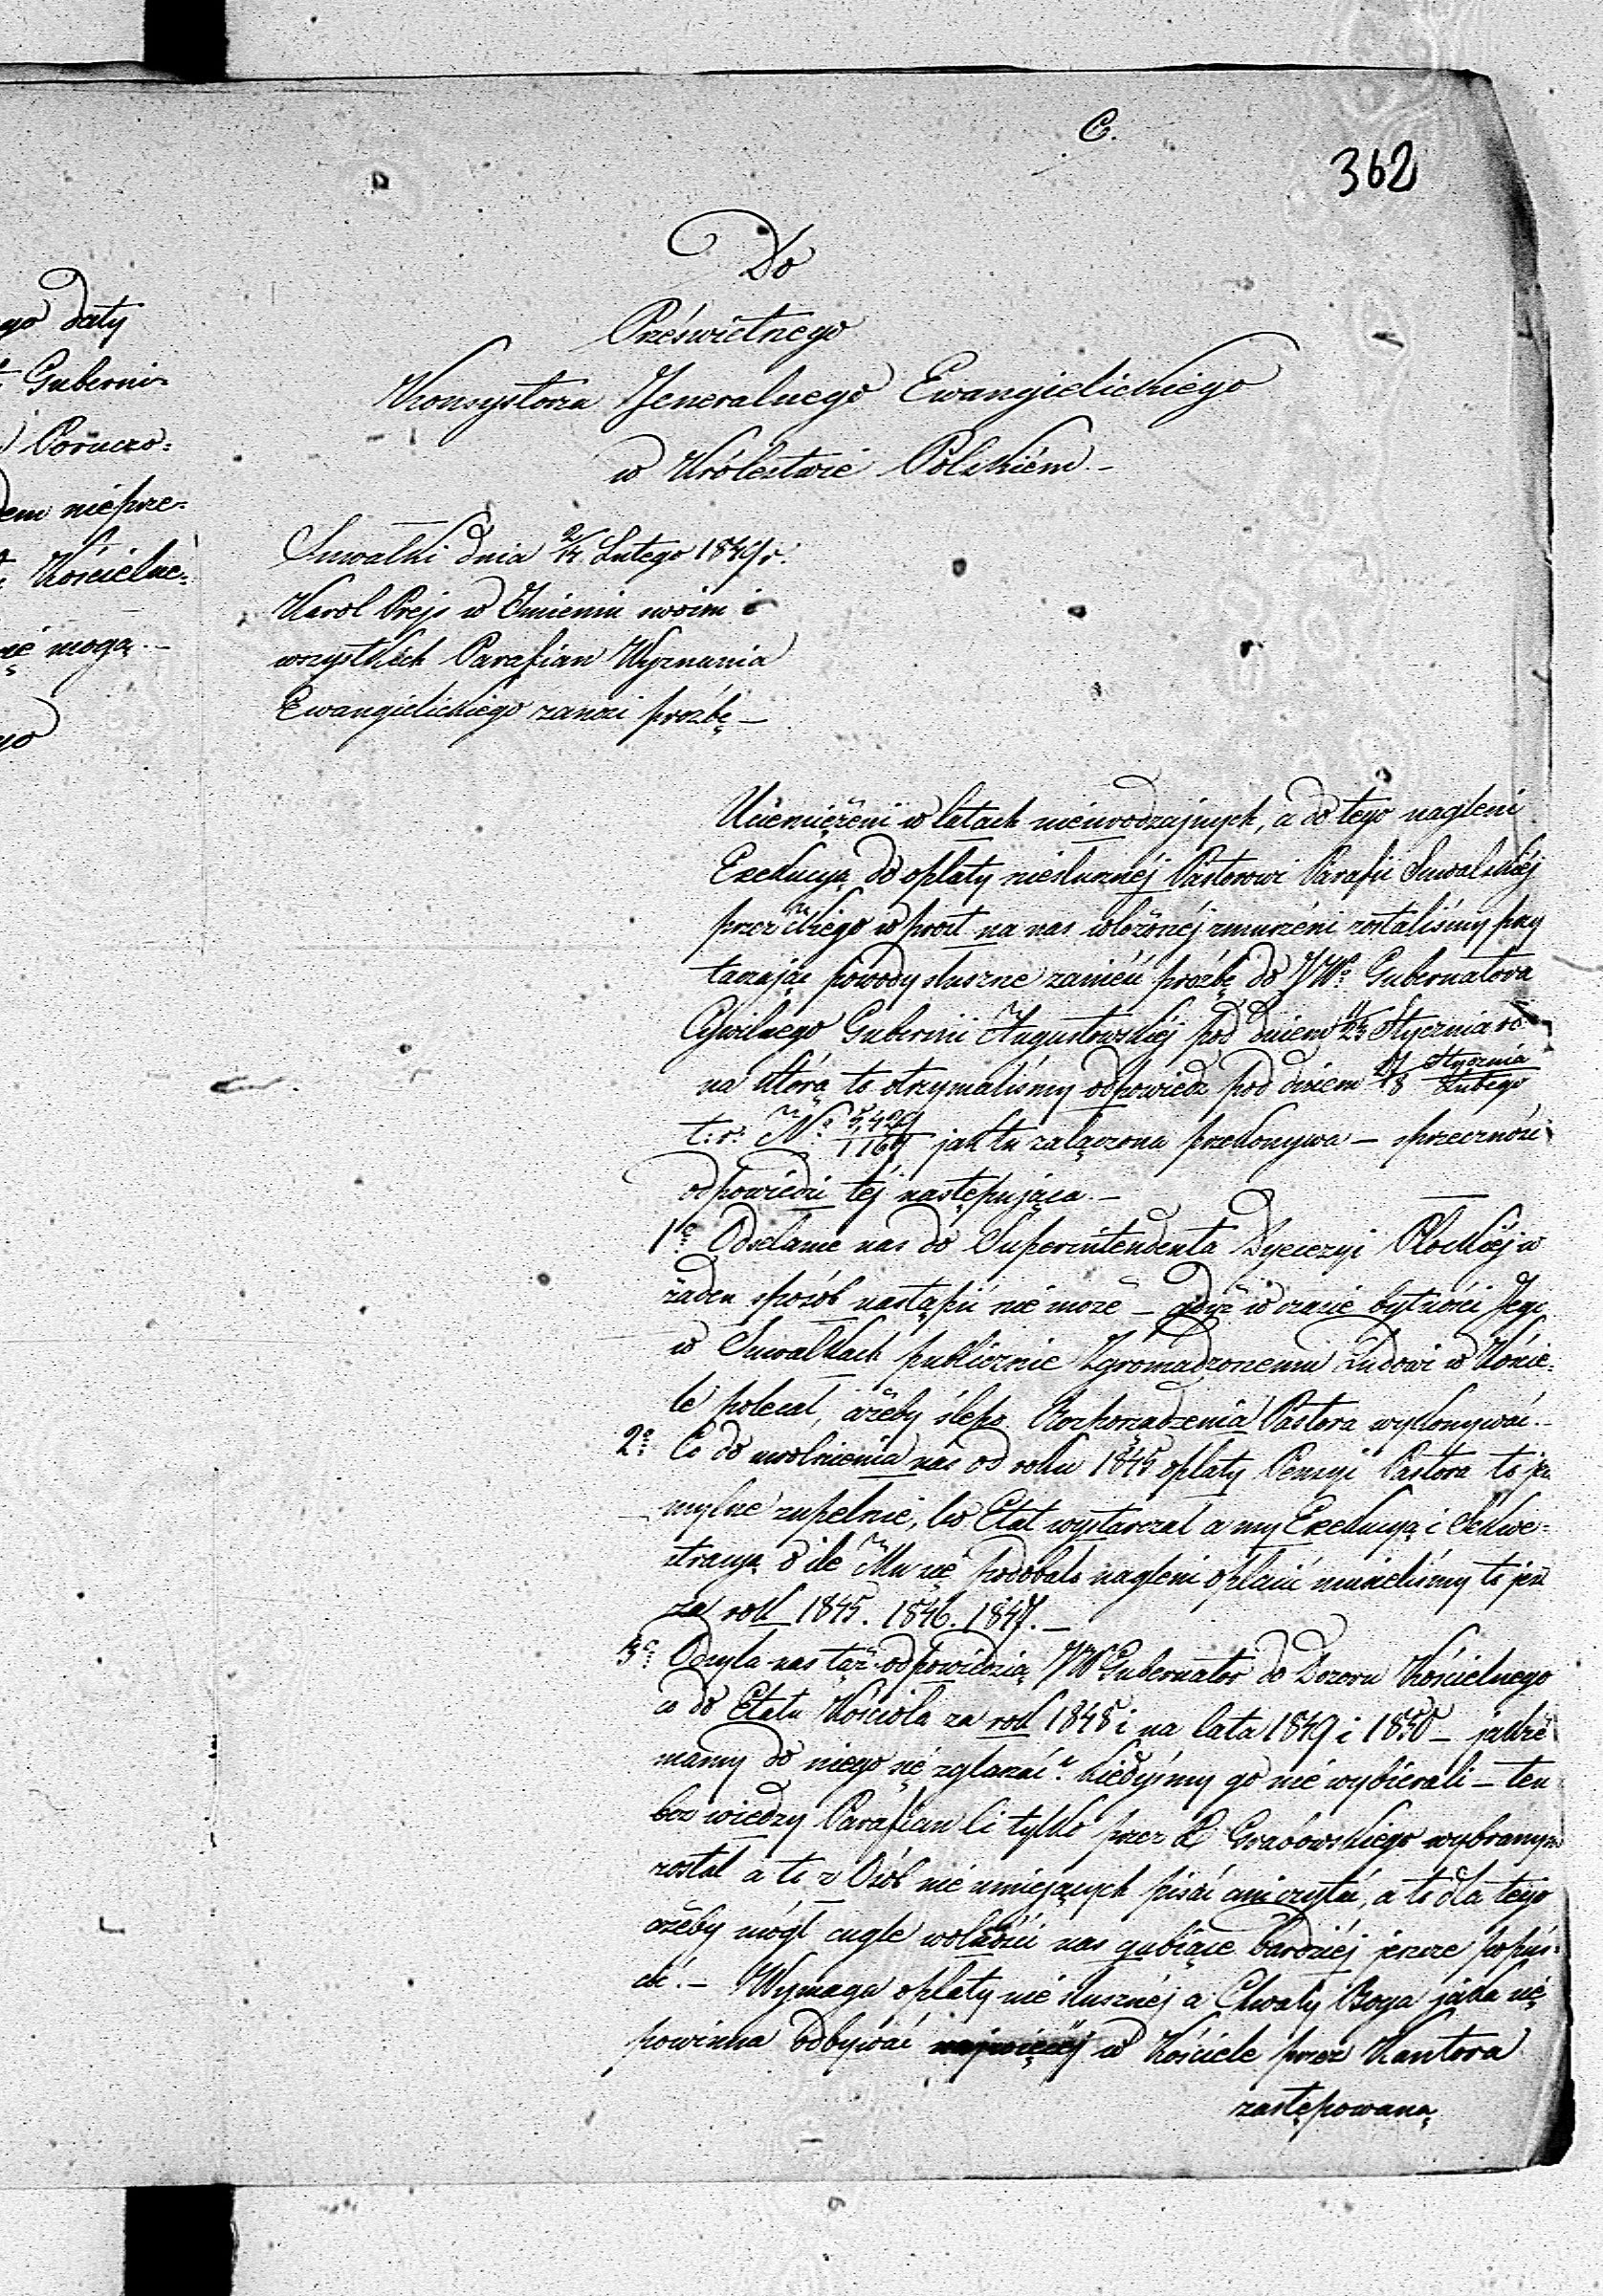 C.
362
Do
Prześwietnego
Konsystorza Jeneralnego Ewangielickiego
w Królestwie Polskiém. –
go daty
Guberni=
Poruczo=
dem nieprze=
Kościelne=
ię mogą. –
go
Suwałki dnia 2/14 Lutego 1849 r.
Karol Prejs w Imieniu swoim i
wszystkich Parafian Wyznania
Ewangielickiego zanosi prozbę –
Uciemiężeni w latach nieurodzajnych, a do tego nagleni
Exekucyą do opłaty niesłusznéj Pastorowi Parafii Suwalskiéj
przez tkiego w prost na nas włożonéj zmuszeni zostaliśmy przy
taczając powody słuszne zanieść prozbę do JWo Gubernatora
Cywilnego Gubernii Augustowskiéj pod dniem 11/23 Stycznia r.
na którą to otrzymaliśmy odpowiedź pod dniem 27/8 Stycznia/Lutego
t: r: No 5,429/1167 jak tu załączona przekonywa – sprzeczność
odpowiedzi téj następująca. –
1e Odsełanie nas do Superintendenta Dyecezyi Płockiéj w
żaden sposób nastąpić nie może – gdyż w czasie bytności Jego
w Suwałkach publicznie Zgromadzonemu Ludowi w Koście=
le polecał, ażeby ślepo Rozporządzenia Pastora wykonywać. –
2e Co do uwolnienia nas od roku 1845 opłaty Pensyi Pastora to jest
mylne zupełnie, bo Etat wystarczał a my Exekucyą i Sekwe=
stracyą o ile Mu się podobało nagleni opłacić musieliśmy to jest
za rok 1845. 1846. 1847. –
3e Odsyła nas tąż odpowiedzią JW Gubernator do Dozoru Kościelnego
co do Etatu Kościoła za rok 1848 i na lata 1849 i 1850 – jakże
mamy do niego się zgłaszać kiedyśmy go nie wybierali – ten
bez wiedzy Parafian li tylko przez X Grabowskiego wybranym
został a to z Osób nie umiejących pisać ani czytać, a to dla tego
ażeby mógł cugle wolności nas gubiące bardziéj jeszcze popuś=
cić. – Wymaga opłaty nie słusznéj a Chwały Boga jaka się
powinna odbywać w Kościele przez Kantora
zastępowaną